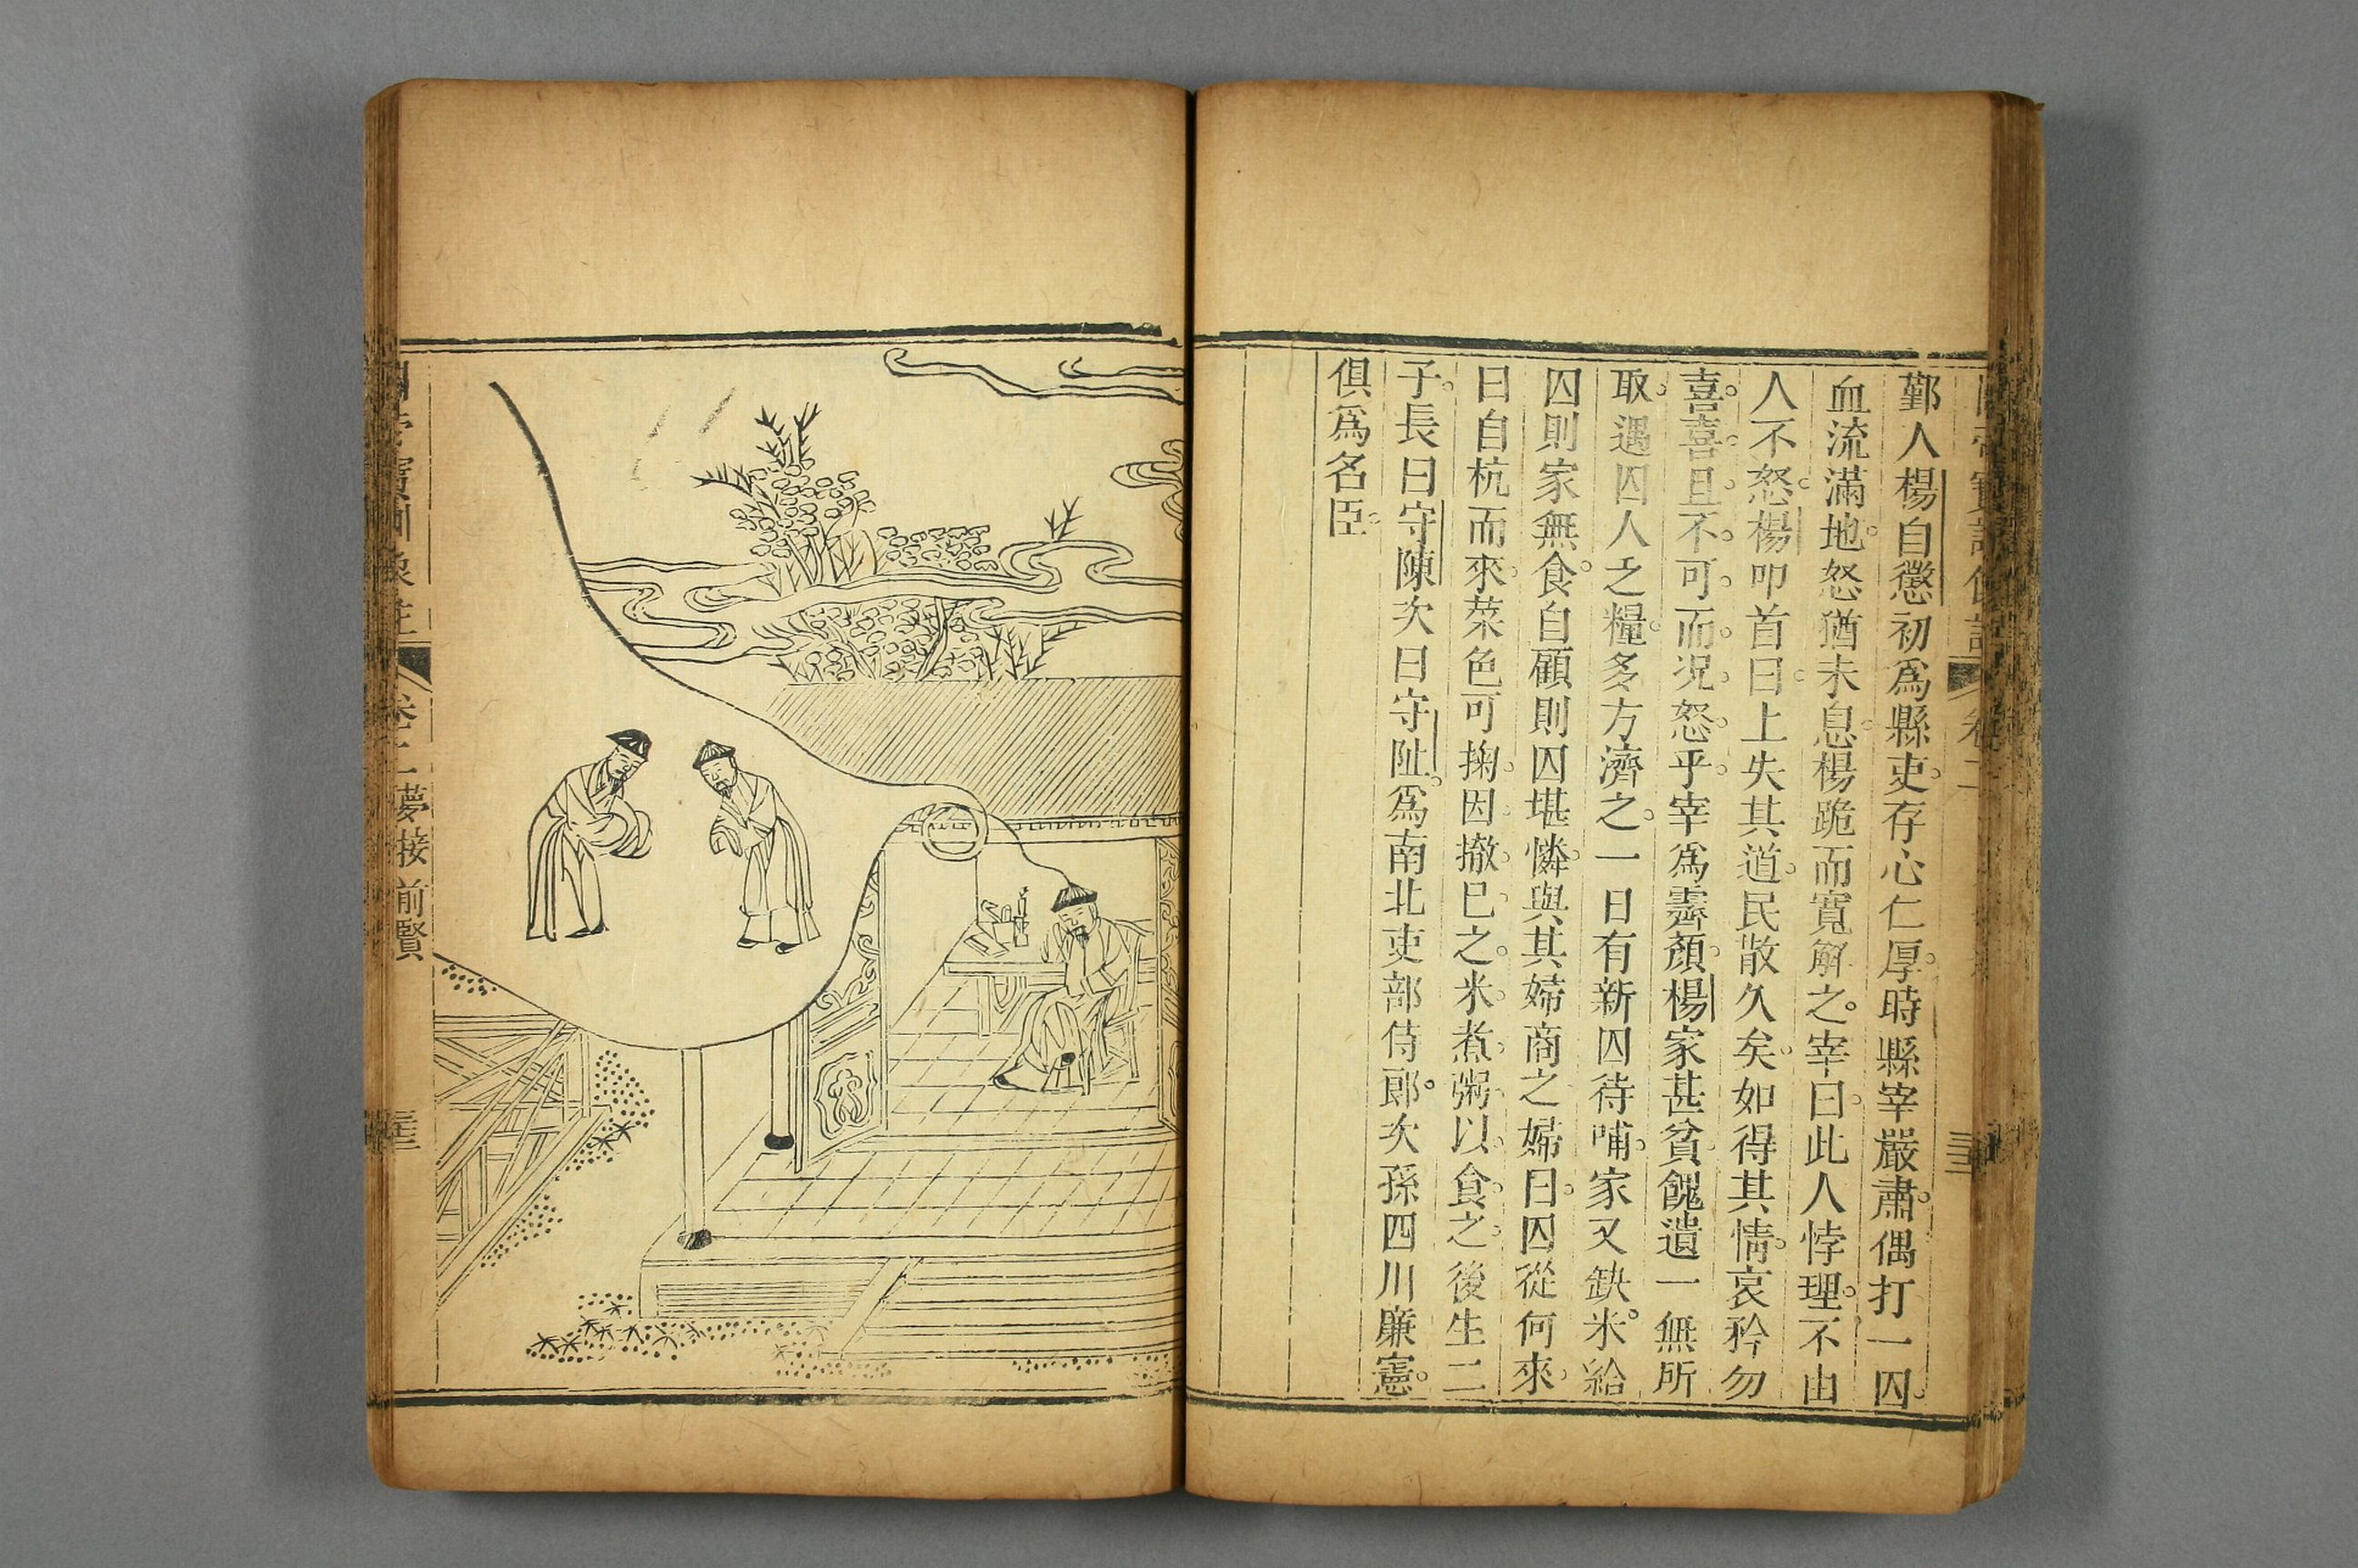 鄞人楊自懲初爲縣吏存心仁厚時縣宰嚴肅偶打一囚
血流滿地怒猶未息楊跪而寬解之宰曰此人悖理不由
人不怒楊叩首曰上失其道民散久矣如得其情哀矜勿
喜喜且不可而况怒乎宰爲霽顏楊家甚貧餽遺一無所
取遇囚人乏糧多方濟之一日有新囚待哺家又缺米給
囚則家無食自顧則囚堪憐與其婦商之婦曰囚從何來
曰自杭而來菜色可掬因撤巳之米煮粥以食之後生二
子長曰守陳次曰守阯爲南北吏部侍郎次孫四川廉憲
俱爲名臣
卷二 夢接前賢